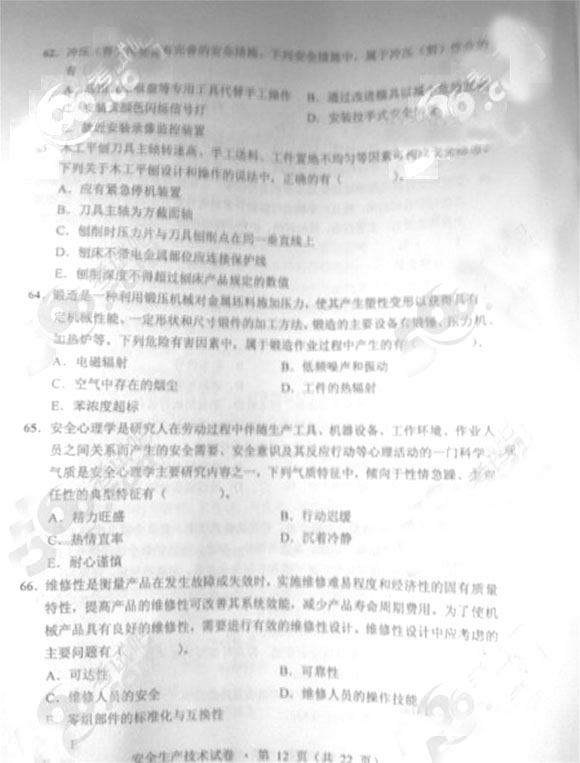 62. 冲压（剪）作业应有完善的安全措施，下列安全措施中，属于冲压（剪）作业的
有（
盘等专用工具代替手工操作 B. 通过改进模具以减
C. 安装黄颜色闪烁信号灯 D. 安装拉手式安全
E. 就近安装录像监控装置
木工平刨刀具主轴转速高，手工送料、工件置地不均匀等因素
下列关于木工平刨设计和操作的说法中，正确的有（ ）。
A. 应有紧急停机装置
B. 刀具主轴为方截面轴
C. 刨削时压力片与刀具刨削点在同一垂直线上
D. 刨床不带电金属部位应连接保护线
E. 刨削深度不得超过刨床产品规定的数值
64. 锻造是一种利用锻压机械对金属坯料施加压力，使其产生塑性变形以获得具有
定机械性能、一定形状和尺寸锻件的加工方法，锻造的主要设备有锻锤、压力机、
加热炉等，下列危险有害因素中，属于锻造作业过程中产生的有（ ）。
A. 电磁辐射 B. 低频噪声和振动
C. 空气中存在的烟尘 D. 工件的热辐射
E. 苯浓度超标
65. 安全心理学是研究人在劳动过程中伴随生产工具、机器设备、工作环境、作业人
员之间关系而产生的安全需要、安全意识及其反应行动等心理活动的一门科学。
气质是安全心理学主要研究内容之一，下列气质特征中，倾向于性情急躁、主
任性的典型特征有（ ）。
A. 精力旺盛 B. 行动迟缓
C. 热情直率 D. 沉着冷静
E. 耐心谨慎
66. 维修性是衡量产品在发生故障或失效时，实施维修难易程度和经济性的固有质量
特性，提高产品的维修性可改善其系统效能，减少产品寿命周期费用。为了使机
械产品具有良好的维修性，需要进行有效的维修性设计。维修性设计中应考虑的
主要问题有（ ）。
A. 可达性 B. 可靠性
C. 维修人员的安全 D. 维修人员的操作技能
E. 零组部件的标准化与互换性
安全生产技术试卷 · 第 12 页（共 22 页）